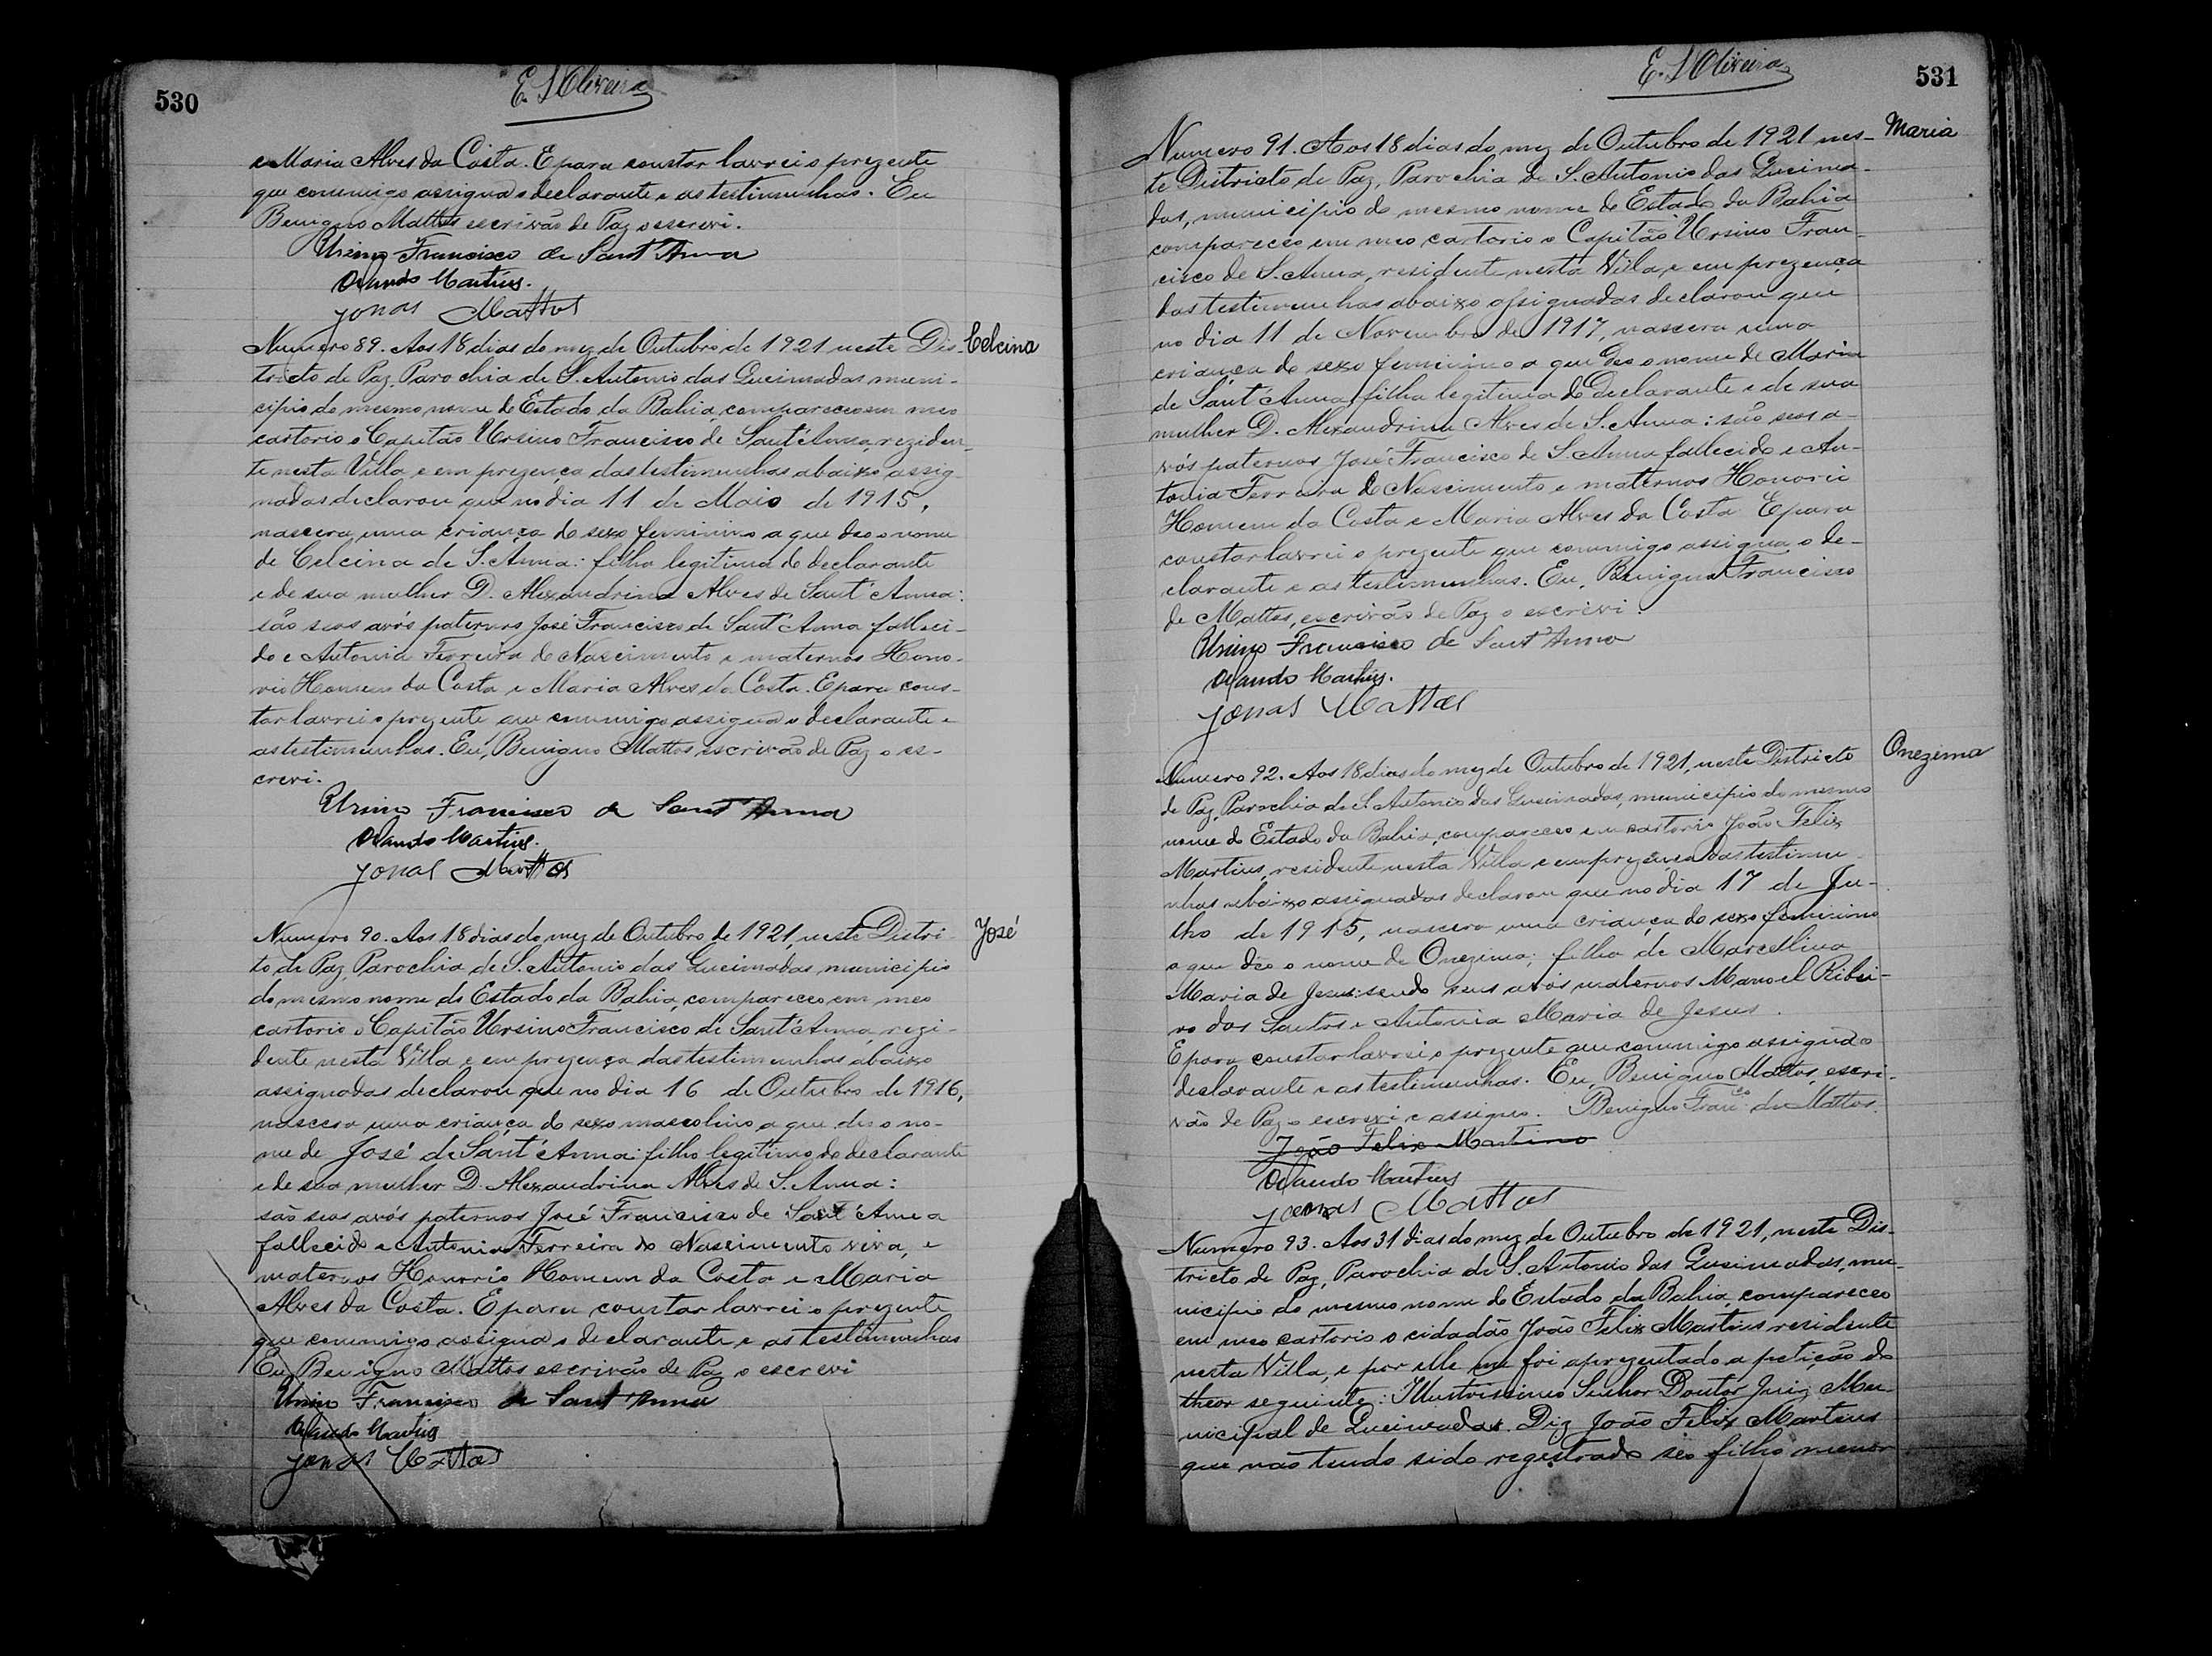 530
E. S. Oliveira
e Maria Alves da Costa. E para constar lavrei o prezente
que commigo assigna o declarante e as testimunhas. Eu
Benigno Mattos escrivão de Paz o escrevi.
Ursino Francisco de Sant'Anna
Orlando Martins.
Jonas Mattos
Numero 89. Aos 18 dias do mez de Outubro de 1921 neste Dis-
Celcina
tricto de Paz Parochia de S. Antonio das Queimadas muni-
cipio do mesmo nome do Estado da Bahia, compareceo em meo
cartorio o Capitão Ursino Francisco de Sant'Anna, reziden-
te nesta Villa e em prezença das testimunhas abaixo assig-
nadas declarou que no dia 11 de Maio de 1915,
nascera uma criança do sexo feminino a que deo o nome
de Celcina de S. Anna: filha legitima do declarante
e de sua mulher D. Alexandrina Alves de Sant'Anna:
são seos avós paternos José Francisco de Sant'Anna falleci-
do e Antonia Ferreira do Nascimento e maternos Hono-
rio Homem da Costa e Maria Alves da Costa. E para cons-
tar lavrei o prezente que commigo assigna o declarante e
as testimunhas. Eu, Benigno Mattos escrivão de Paz o es-
crevi.
Ursino Francisco de Sant'Anna
Orlando Martins.
Jonas Mattos
Numero 90. Aos 18 dias do mez de Outubro de 1921, neste Distri-
José
to de Paz, Parochia de S. Antonio das Queimadas, municipio
do mesmo nome do Estado da Bahia, compareceo em meo
cartorio o Capitão Ursino Francisco de Sant'Anna, rezi-
dente nesta Villa e em prezença das testimunhas abaixo
assignadas declarou que no dia 16 de Outubro de 1916,
nascera uma criança do sexo mascolino a que deo o no-
me de José de Sant'Anna: filho legitimo do declarante
e de sua mulher D. Alexandrina Alves de S. Anna:
são seos avós paternos José Francisco de Sant'Anna
fallecido e Antonia Ferreira do Nascimento viva, e
maternos Honorio Homem da Costa e Maria
Alves da Costa. E para constar lavrei o prezente
que commigo assigna o declarante e as testimunhas
Eu Benigno Mattos escrivão de Paz o escrevi
Ursino Francisco de Sant'Anna
Orlando Martins
Jonas Mattos
E. S. Oliveira
531
Numero 91. Aos 18 dias do mez de Outubro de 1921 nes-
Maria
te Districto de Paz, Parochia de S. Antonio das Queima-
das, municipio do mesmo nome do Estado da Bahia
compareceo em meo cartorio o Capitão Ursino Fran-
cisco de S. Anna, residente nesta Villa, e em prezença
das testimunhas abaixo assignadas declarou que
no dia 11 de Novembro de 1917, nascera uma
criança do sexo feminino a que deo o nome de Maria
de Sant'Anna, filha legitima do Declarante e de sua
mulher D. Alexandrina Alves de S. Anna: são seos a-
vós paternos José Francisco de S. Anna fallecido e An-
tonia Ferreira do Nascimento e maternos Honorio
Homem da Costa e Maria Alves da Costa E para
constar lavrei o prezente que commigo assigna o de-
clarante e as testimunhas. Eu, Benigno Francisco
de Mattos, escrivão de Paz o escrevi.
Ursino Francisco de Sant'Anna
Orlando Martins.
Jonas Mattos
Numero 92. Aos 18 dias do mez de Outubro de 1921, neste Districto
Onezima
de Paz, Parochia de S. Antonio das Queimadas, municipio do mesmo
nome do Estado da Bahia, compareceo em cartorio João Felix
Martins, residente nesta Villa e em prezença das testimu-
nhas abaixo assignadas declarou que no dia 17 de Ju-
lho de 1915, nascera uma criança do sexo feminino
a que deo o nome de Onezima; filha de Marcellina
Maria de Jesus: sendo seus avós maternos Manoel Ribei-
ro dos Santos e Antonia Maria de Jesus.
E para constar lavrei o prezente que commigo assigna o
declarante e as testimunhas. Eu, Benigno Mattos, escri-
vão de Paz o escrevi e assigno. Benigno Franco de Mattos.
João Felix Martins
Orlando Martins
Jonas Mattos
Numero 93. Aos 31 dias do mez de Outubro de 1921, neste Dis-
tricto de Paz, Parochia de S. Antonio das Queimadas, mu-
nicipio do mesmo nome do Estado da Bahia, compareceo
em meo cartorio o cidadão João Felix Martins residente
nesta Villa, e por elle me foi aprezentado a petição do
theor seguinte: Illustrissimo Senhor Doutor Juiz Mu-
nicipal de Queimadas. Diz João Felix Martins
que não tendo sido registrado seo filho menor